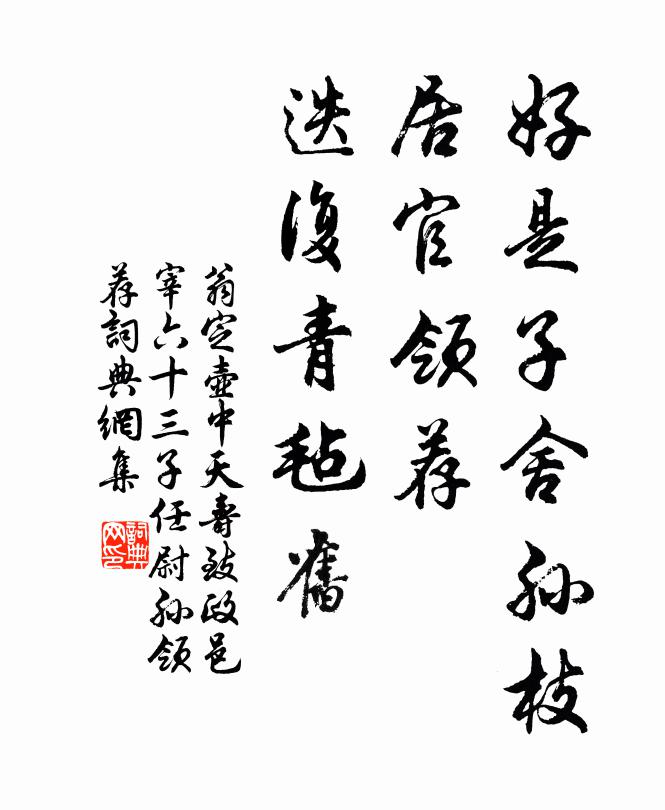 好是子舍孙枝
居官领荐
迭復青毡舊
翁定壶中天壽致政邑
宰六十三子任尉孙领
荐詞典網集
詞典
网印